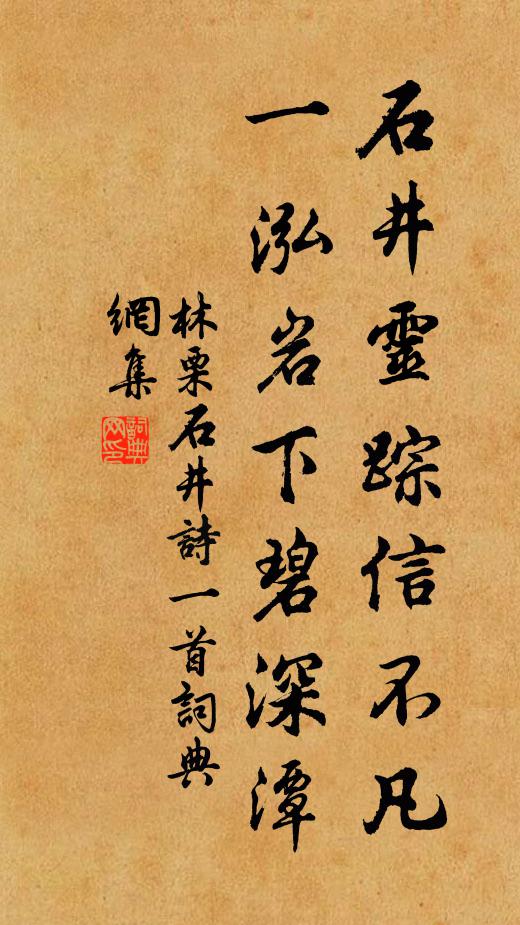 石井靈踪信不凡
一泓岩下碧深潭
林栗石井詩一首詞典
網集
詞典
网印